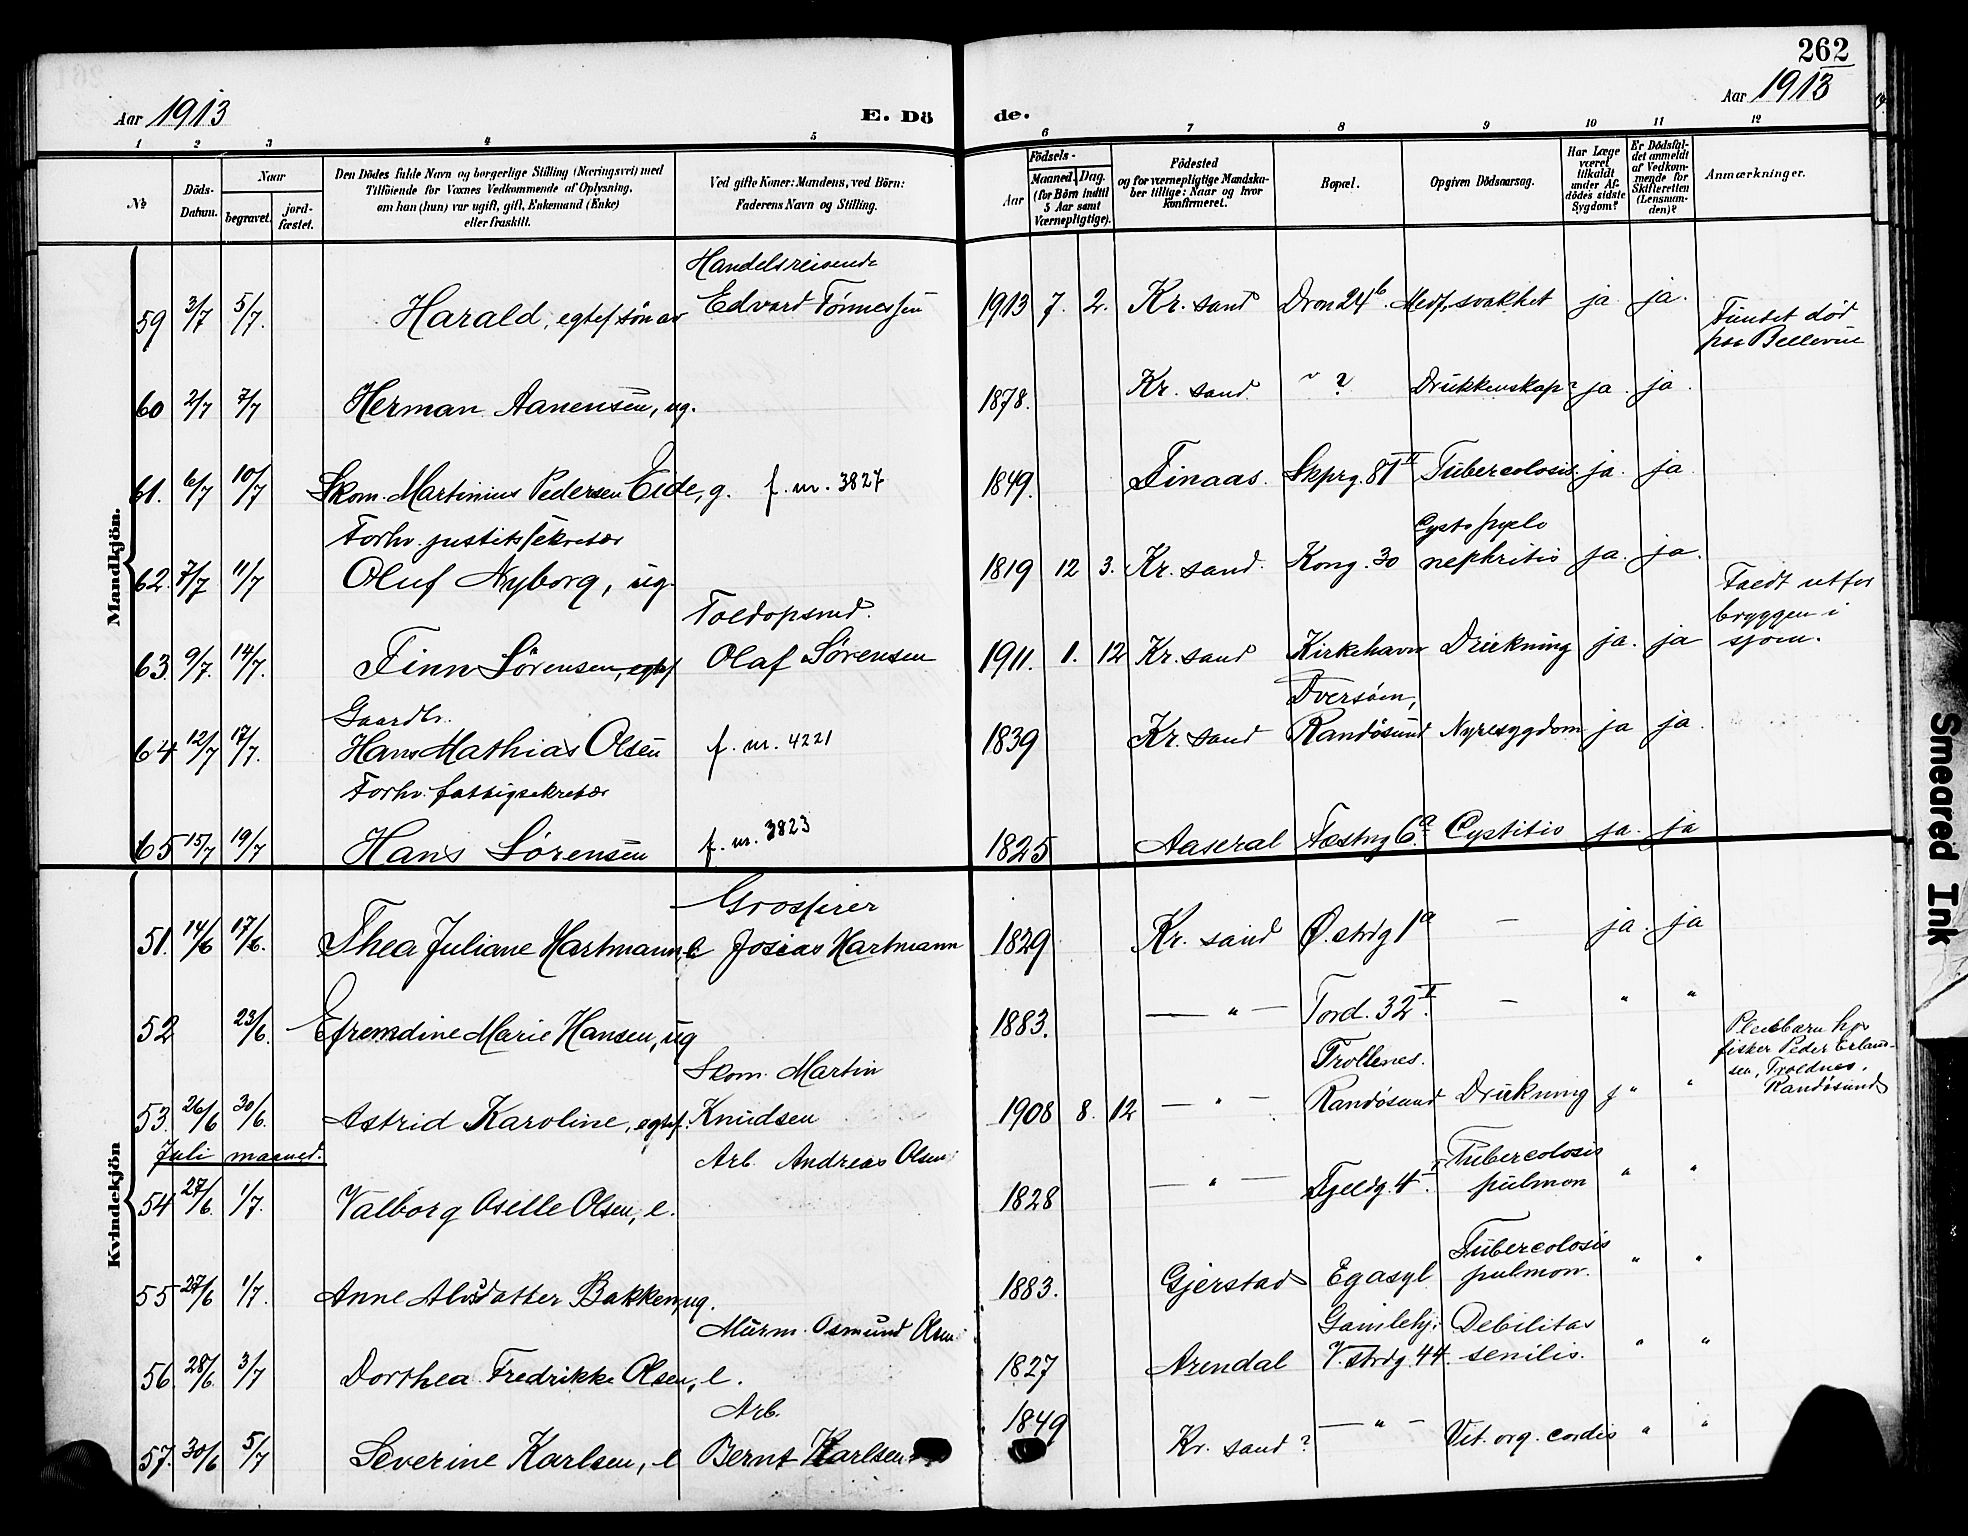 262
Aar 1913
E. Dö
de.
Aar 1913
1 2 3 4 5 6 7 8 9 10 11 12
№
Döds-Datum.
Naar
begravet.
jord-fæstet.
Den Dödes fulde Navn og borgerlige Stilling (Næringsvei) med
Tilföiende for Voxnes Vedkommende af Oplysning,
om han (hun) var ugift, gift, Enkemand (Enke)
eller fraskilt.
Ved gifte Koner: Mandens, ved Börn:
Faderens Navn og Stilling.
Födsels-
Aar
Maaned. Dag.
(for Börn indtil
5 Aar samt
Værnepligtige).
Födested
og for værnepligtige Mandska-
ber tillige: Naar og hvor
konfirmeret.
Bopæl.
Opgiven Dödsaarsag.
Har Læge
været
tilkaldt
under Af-
dödes sidste
Sygdom?
Er Dödsfal-
det anmeldt
af Vedkom-
mende for
Skifteretten
(Lensman-
den)?
Anmærkninger.
Mandkjön.
Handelsreisende
59 3/7 5/7. Harald, egtef. søn av Edvard Tønnessen 1913 7. 2. Kr. sand Dron 24 b. Medf. svakhet ja ja.
60 2/7 7/7 Herman Aanensen, ug. 1878. Kr. sand " ? Drukkenskap? ja. ja.
Fundet død
paa Bellevue
61. 6/7 10/7 Skom. Martinius Pedersen Eide, g. f. nr. 3827 1849. Finaas. Skprg. 87 II Tuberculosis. ja. ja
Forhv. justitssekretær
Cysto pyelo
62. 7/7 11/7 Oluf Nyborg, ug. 1819 12 3. Kr. sand. Kong. 30 nephritis ja. ja.
Toldopsmd.
63. 9/7. 14/7. Finn Sørensen, egtef Olaf Sørensen 1911. 1. 12 Kr. sand Kirkehavn Drukning ja. ja
Faldt utfor
bryggen i
sjøen.
Gaardbr.
64 12/7 17/7. Hans Mathias Olsen f. nr. 4221 1839 Kr. sand Randøsund Nyresygdom ja ja.
Forhv. fattigsekretær
65 15/7 19/7 Hans Sørensen f. nr. 3823 1825 Aaseral Fæstng 6 a. Cystitis ja. ja
Kvindekjön
Grosserer
51. 14/6 17/6. Thea Juliane Hartmann, e Josias Hartmann 1829 Kr. sand Ø. strdg 1 a — ja. ja
52 23/6. Efremdine Marie Hansen, ug 1883. — " — Tord. 32 II. — " "
Skom. Martin
Trollenes.
53. 26/6 30/6. Astrid Karoline, egtef. Knudsen 1908 8. 12 — " — Randøsund Drukning j " "
Pleiebarn hos
fisker Peder Erland-
sen, Troldnes,
Randøsund
Juli maaned.
Arb. Andreas Olsen
54 27/6. 1/7. Valborg Oselle Olsen, e. 1828 — " — Fjeldg. 4 I. Tuberculosis pulmon " "
55 27/6 1/7. Anne Alvsdatter Bakken, ug. 1883. Gjerstad Egasyl Tuberculosis pulmon. " "
Murm. Osmund Olsen
Gamlehj.
56. 28/6. 3/7 Dorthea Fredrikke Olsen, e. 1827 Arendal V. strdg. 44. Debilitas senilis. " "
Arb.
57. 30/6 5/7 Severine Karlsen, e Bernt Karlsen 1849 Kr. sand? — " — Vit. org. cordis " "
Smeared Ink